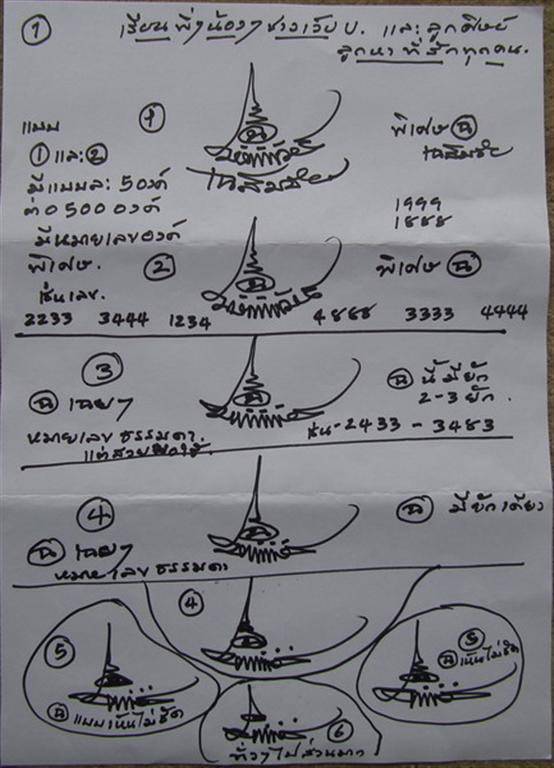 ① เรียน พี่ๆน้องๆ ชาวเว็บ บ. และลูกศิษย์
ลูกหา ที่รักทุกคน.
แบบ ① พิเศษ ฉ
① และ ② เฉลิมชัย
มีแบบละ 50 องค์ เฉลิมชัย
ต่อ 500 องค์ 1999
1888
มีหมายเลของค์
พิเศษ. ② พิเศษ ฉ
เช่นเลข.
2233 3444 1234 4888 3333 4444
③
ฉ เฉยๆ ฉ นี้มียัก
2-3 ยัก.
หมายเลขธรรมดา. เช่น-2433-3483
แต่สวย
④ ฉ มียักเดียว
ฉ เฉยๆ
หมายเลขธรรมดา
④
⑤ ⑤
ฉ แบบเห็นไม่ชัด ฉ เห็นไม่ชัด
⑥
ทั่วๆไปส่วนมาก